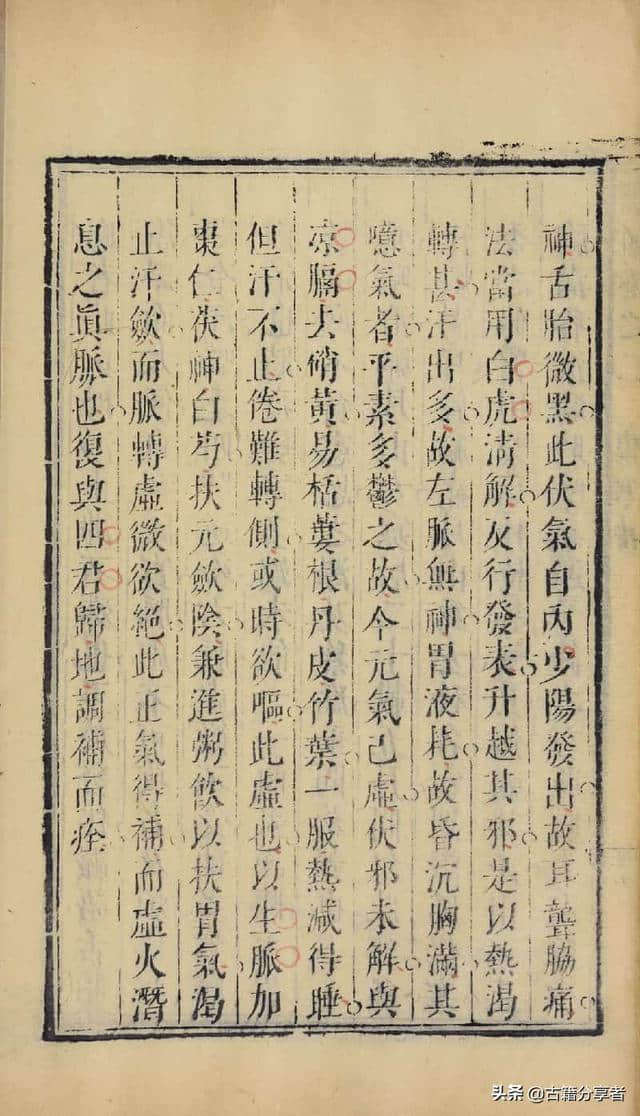 神舌胎微黑此伏氣自內少陽發出故耳聾脇痛
法當用白虎淸解反行發表升越其邪是以熱渴
轉甚汗出多故左脈無神胃液耗故昏沉胸滿其
噫氣者平素多鬱之故今元氣已虛伏邪未解與
凉膈去硝黃易栝蔞根丹皮竹葉一服熱減得睡
但汗不止倦難轉側或時欲嘔此虛也以生脈加
棗仁茯神白芍扶元斂陰兼進粥飮以扶胃氣渴
止汗斂而脈轉虛微欲絕此正氣得補而虛火潛
息之眞脈也復與四君歸地調補而痊
头条 @古籍分享者